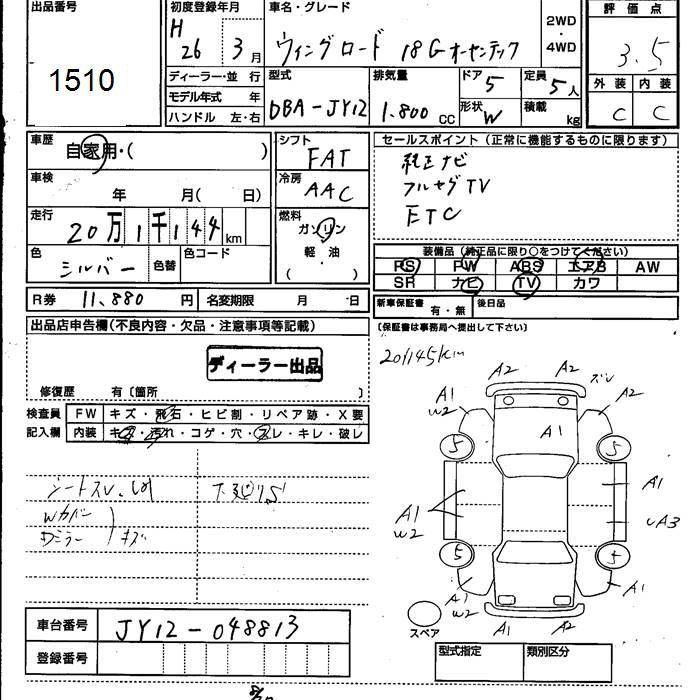 出品番号
1510
初度登録年月
H
26 3月
車名・グレード
ウィングロード 18G オーセンテック
2WD
・
4WD
評価点
3.5
ディーラー・並 行
モデル年式 年
ハンドル 左・右
型式
DBA-JY12
排気量
1,800 CC
ドア 5
形状 W
定員
5人
積載
kg
外装 内装
C C
車歴
自家用・( )
車検
年 月( 日)
走行
20万1千144km
色
シルバー
色替
色コード
シフト
FAT
冷房
AAC
燃料
ガソリン
軽 油
( )
セールスポイント(正常に機能するものに限ります)
純正ナビ
フルセグTV
ETC
装備品(純正品に限り○をつけてください)
PS PW ABS エアB AW
SR ナビ TV カワ
R券 11,880 円
名変期限 月 日
新車保証書 有・無
後日品
出品店申告欄(不良内容・欠品・注意事項等記載)
(保証書は事務局へ提出して下さい)
ディーラー出品
修復歴 有〔箇所 〕
201145km
検査員
記入欄
FW キズ・飛石・ヒビ割・リペア跡・X要
内装 キズ・汚れ・コゲ・穴・スレ・キレ・破レ
シートスレ
Wカバー
Dミラー
キズ
A2 A2 スレ
A1 A2
W2
A1
5 5
A1
A1
W2
A3
5 5
A1
W2
A1
A1 A2
スペア
車台番号 JY12-048813
登録番号
型式指定 類別区分